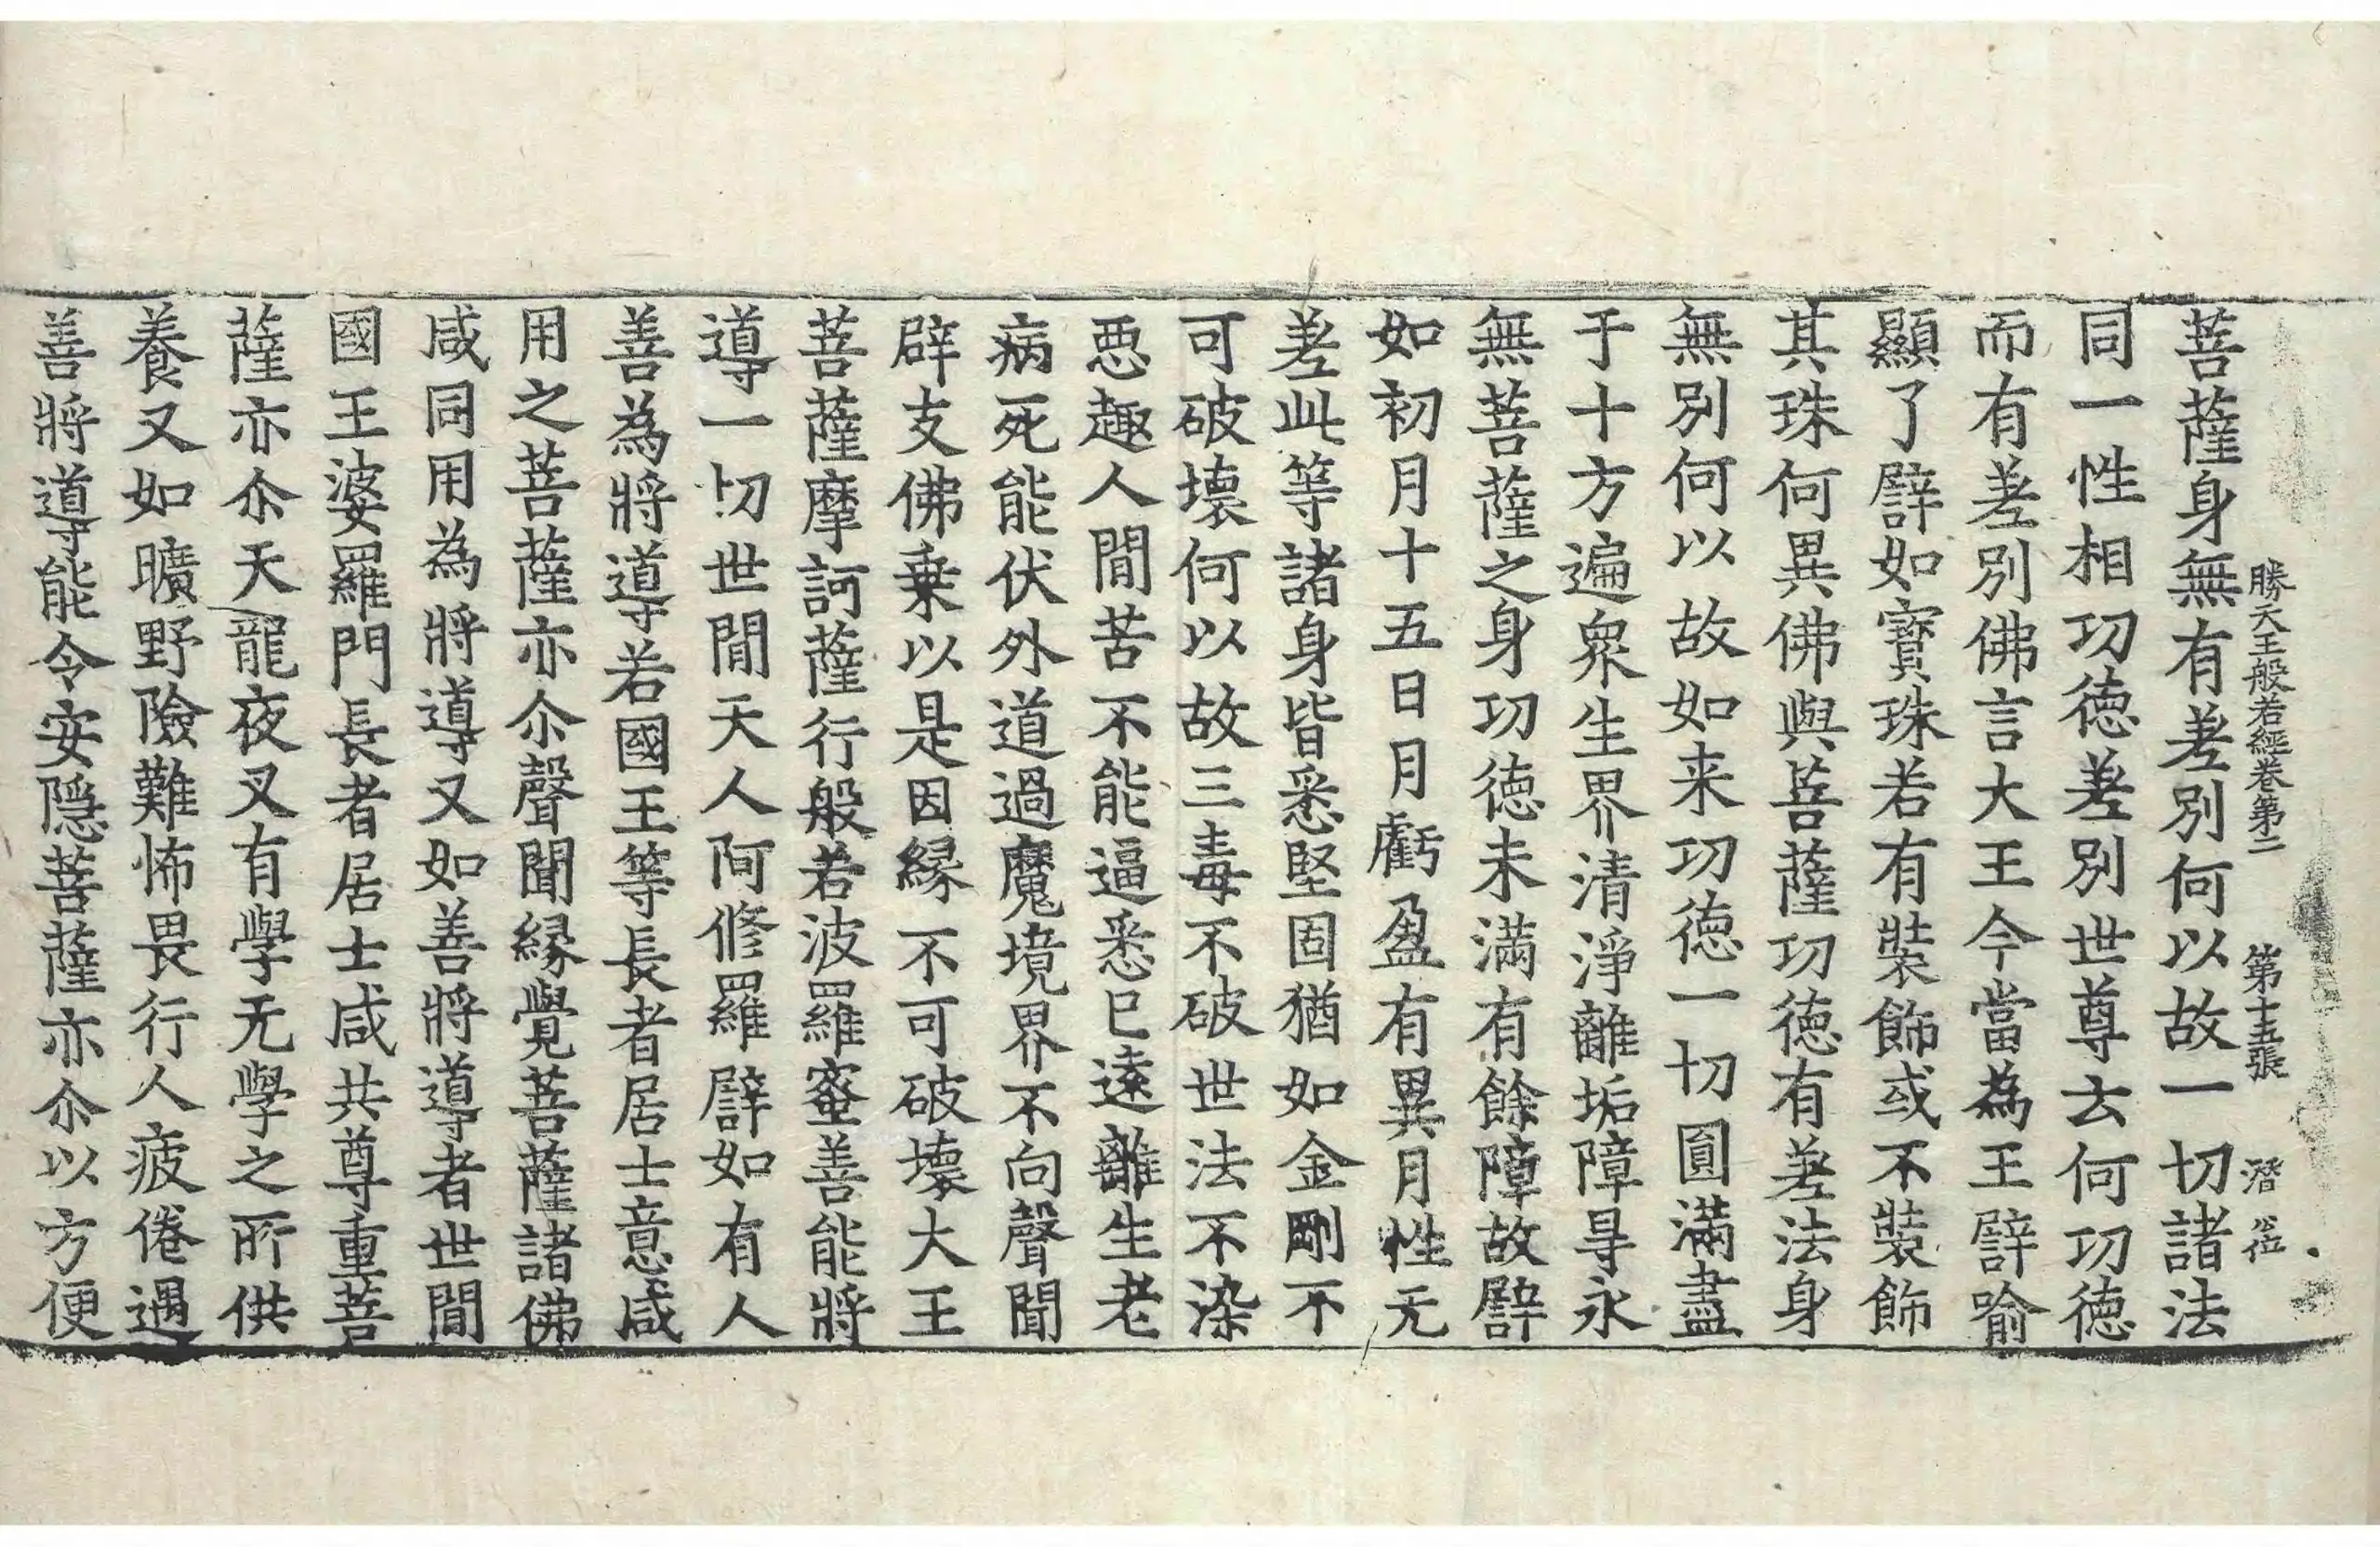 勝天王般若經卷第二　第十五張　潛
菩薩身無有差別何以故一切諸法
同一性相功德差別世尊云何功德
而有差別佛言大王今當為王譬喻
顯了譬如寶珠若有裝飾或不裝飾
其珠何異佛與菩薩功德有差法身
無別何以故如来功德一切圓滿盡
于十方遍衆生界清淨離垢障㝵永
無菩薩之身功德未滿有餘障故譬
如初月十五日月虧盈有異月性无
差此等諸身皆悉堅固猶如金剛不
可破壞何以故三毒不破世法不染
惡趣人間苦不能逼悉已遠離生老
病死能伏外道過魔境界不向聲聞
辟支佛乗以是因緣不可破壞大王
菩薩摩訶薩行般若波羅蜜善能將
導一切世間天人阿修羅譬如有人
善為將導若國王等長者居士意咸
用之菩薩亦尒聲聞緣覺菩薩諸佛
咸同用為將導又如善將導者世間
國王婆羅門長者居士咸共尊重菩
薩亦尒天龍夜叉有學无學之所供
養又如曠野險難怖畏行人疲倦遇
善將導能令安隱菩薩亦尒以方便